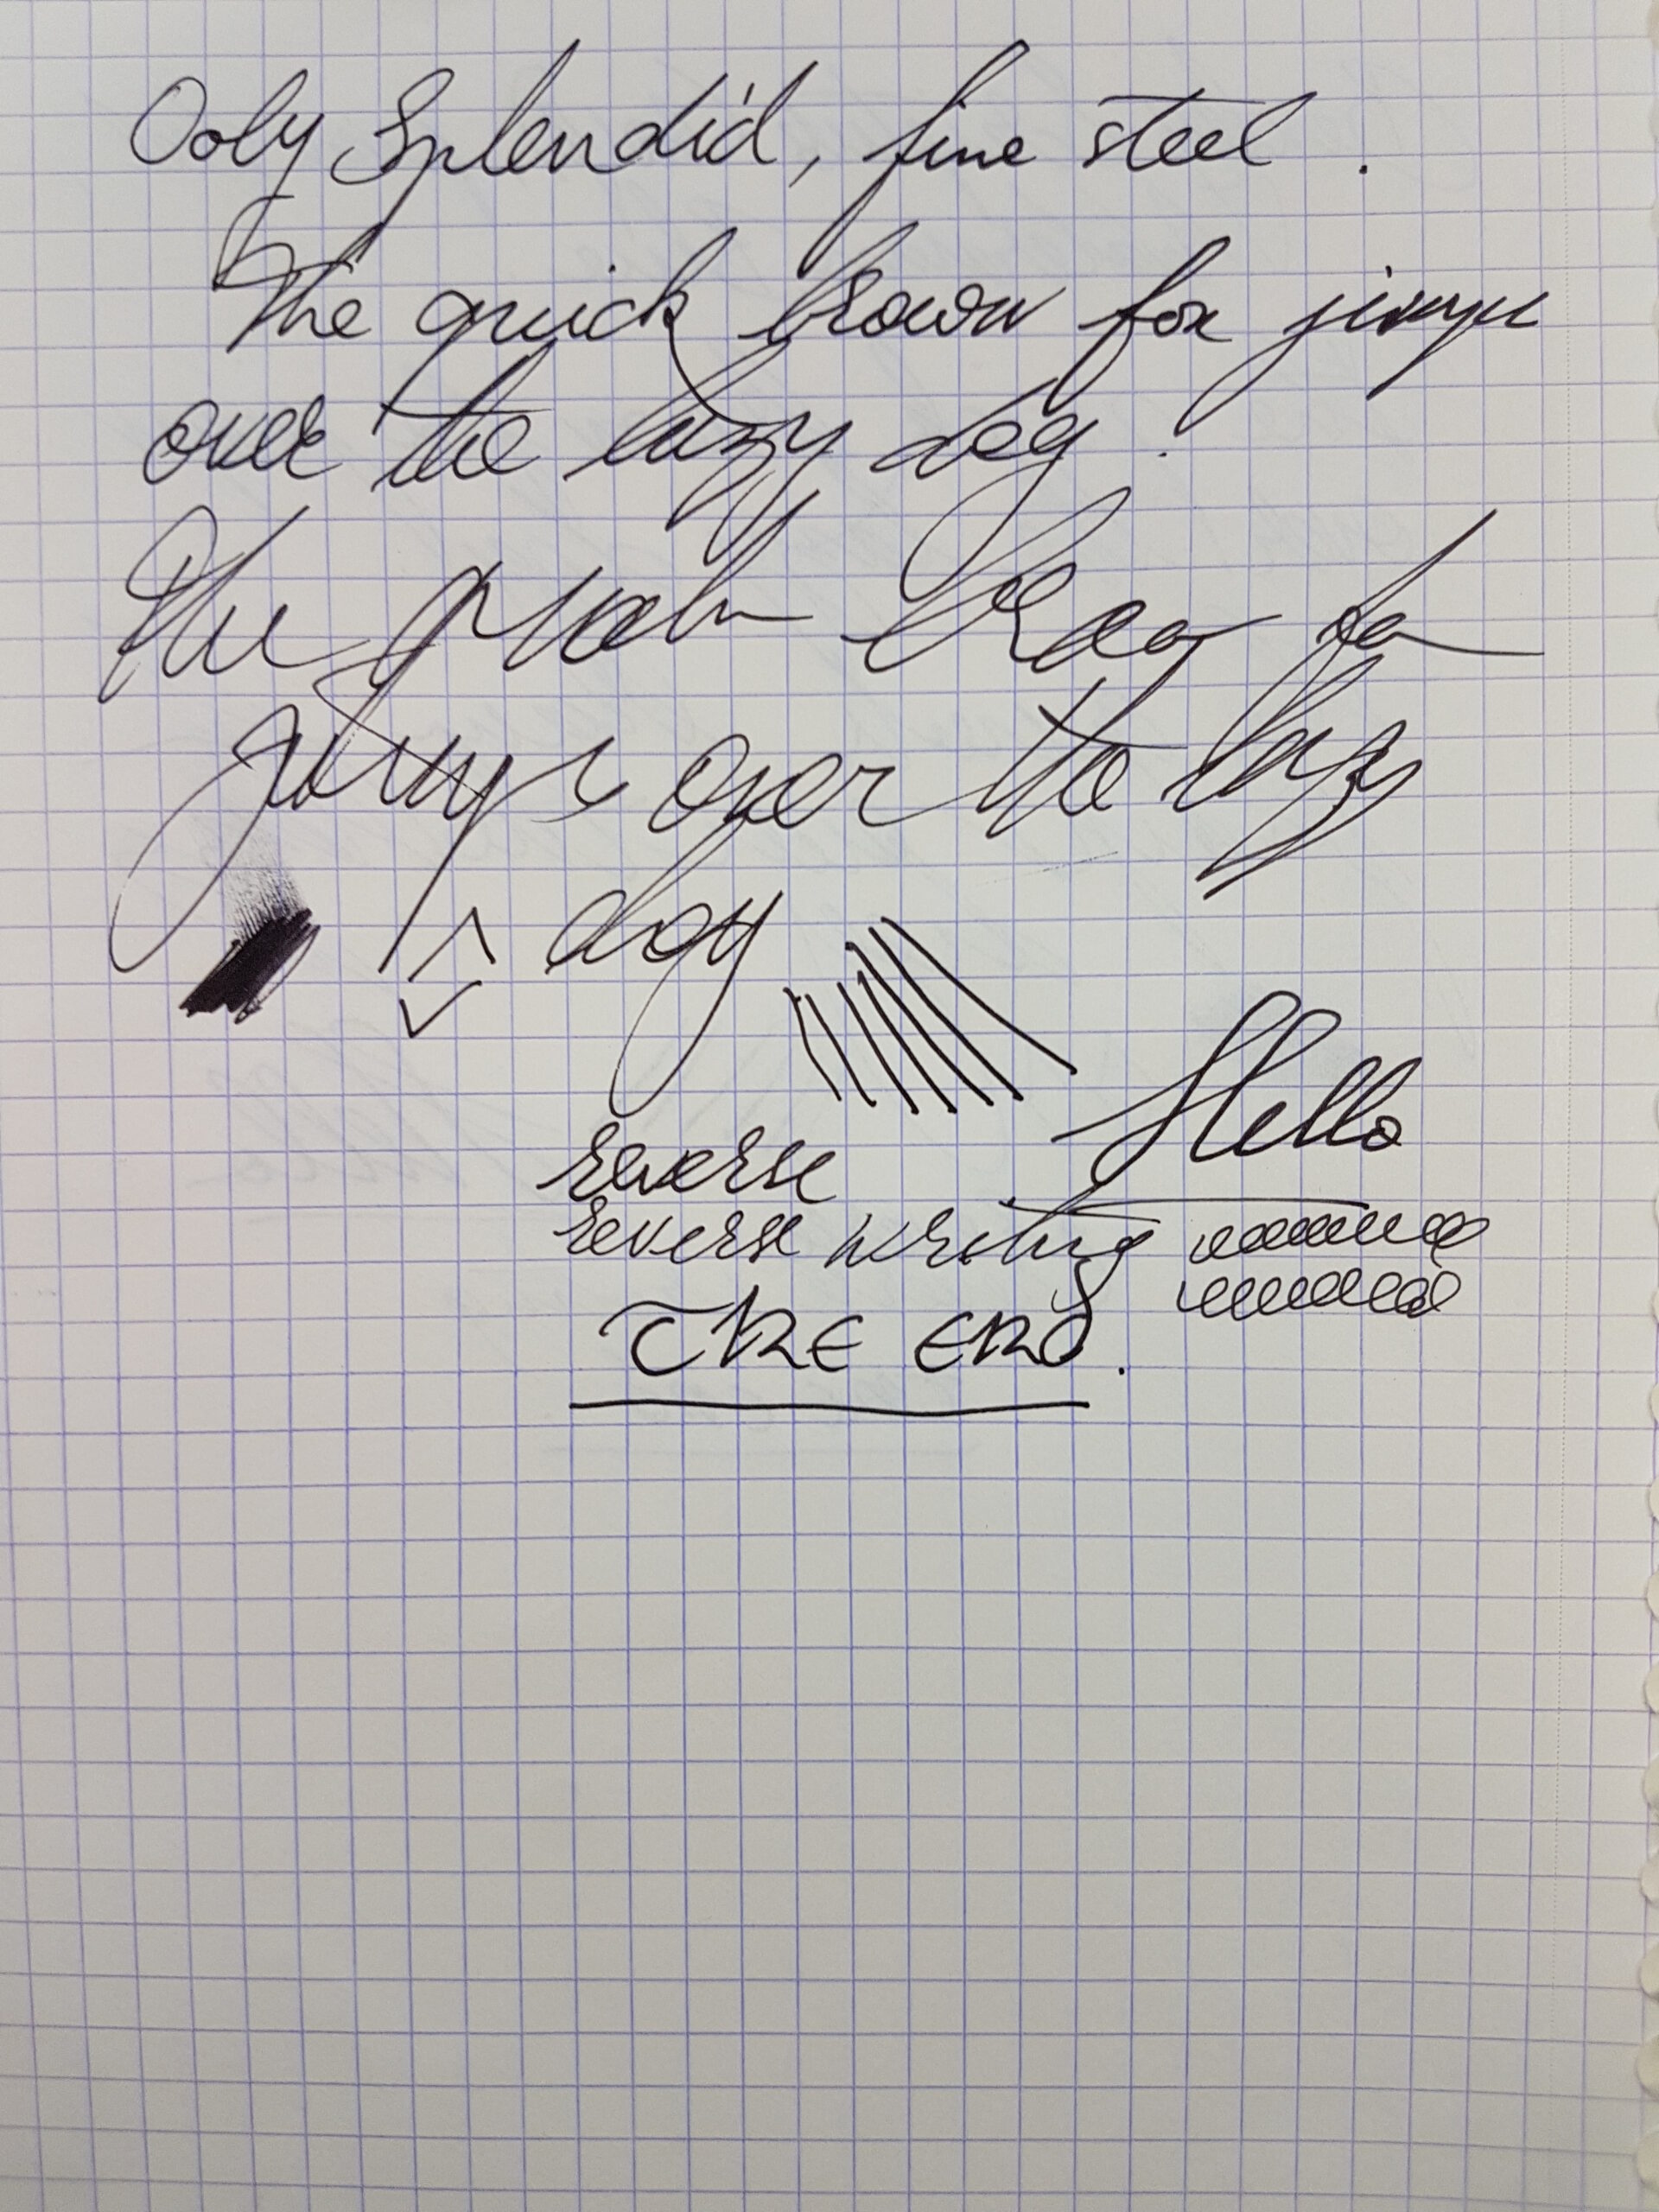 Ooly Splendid, fine steel.
The quick brown fox jumps
over the lazy dog.
The quick brown fox
jumps over the lazy
dog
Hello
reverse
reverse writing
THE END.